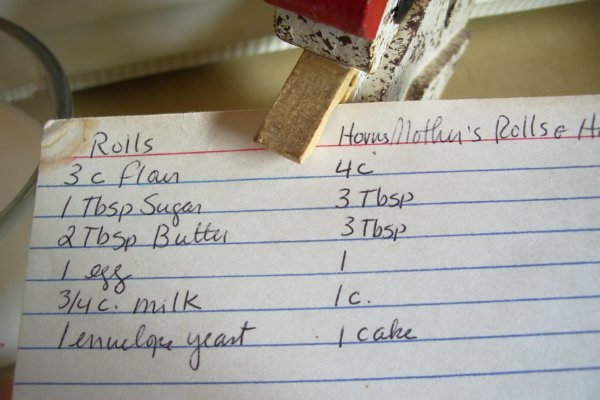 Rolls Mother's Rolls
3 c flour 4 c
1 Tbsp Sugar 3 Tbsp
2 Tbsp Butter 3 Tbsp
1 egg 1
3/4 c. milk 1 c.
1 envelope yeast 1 cake